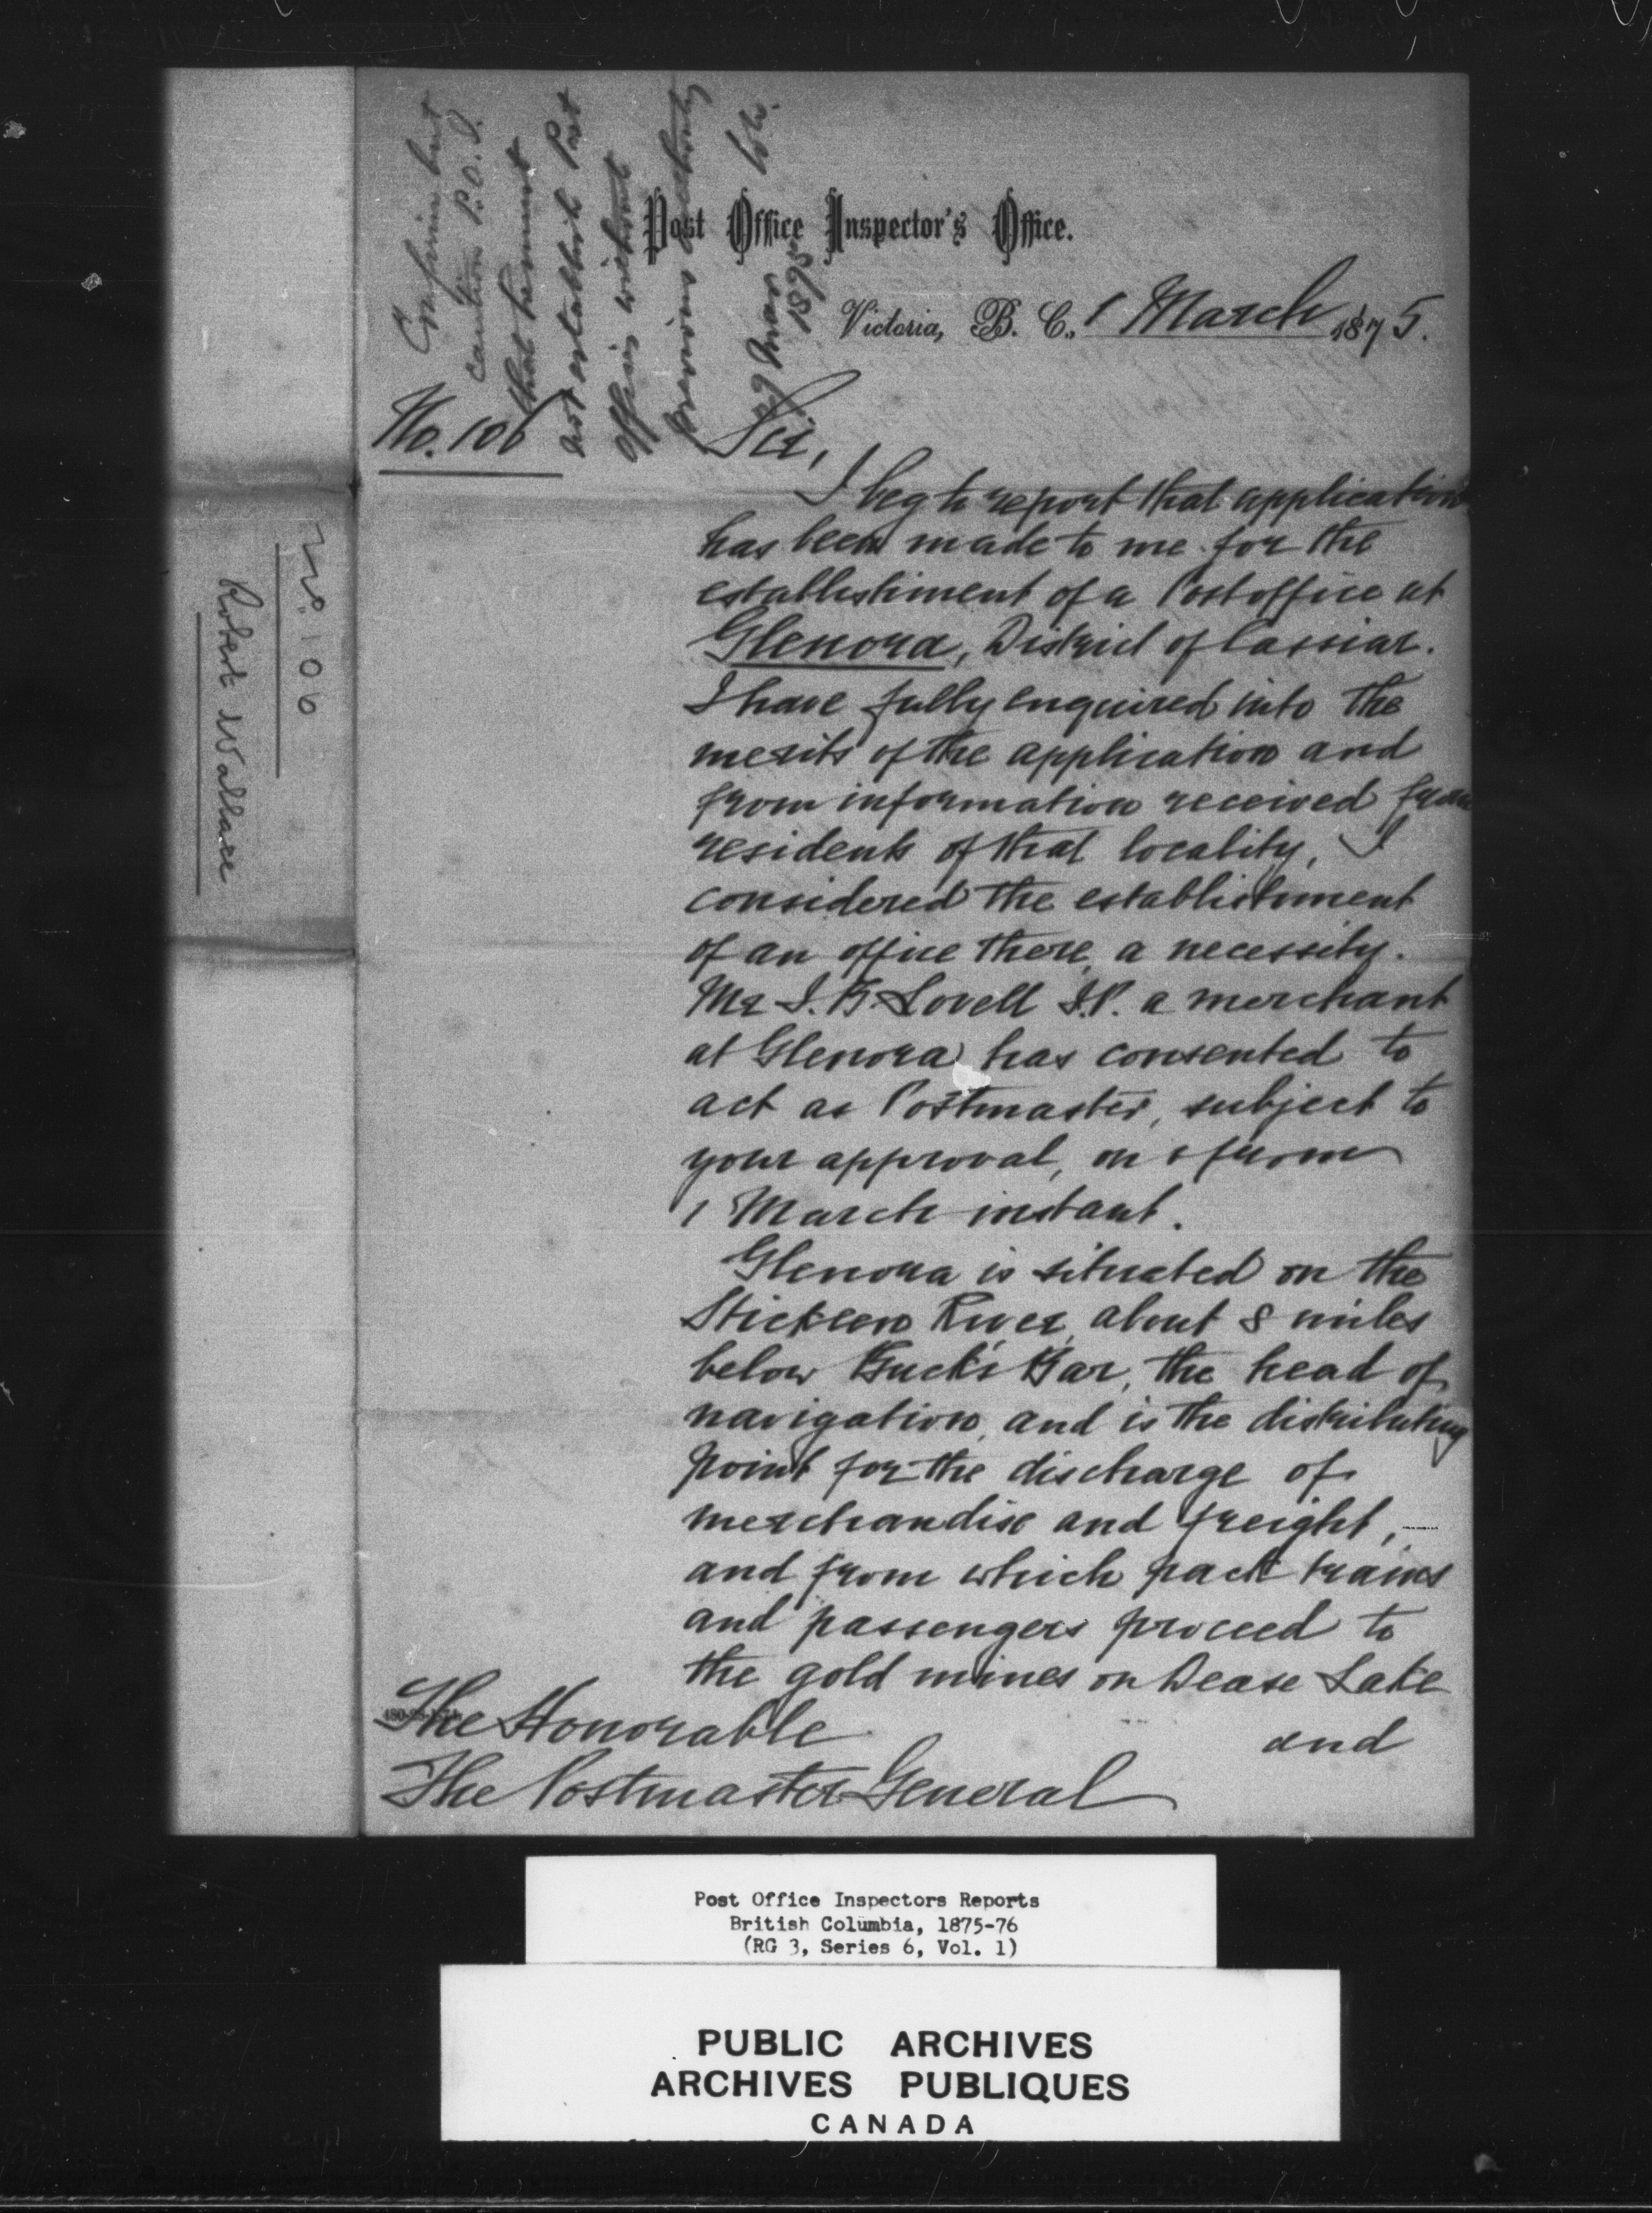 Confirm but
caution P.O.I.
that he must
not establish Post
Offices without
previous authority
29 Mar
1875
Post Office Inspector's Office.
Victoria, B. C., 1 March 1875.
No. 106
Sir,
I beg to report that application
has been made to me for the
establishment of a Post office at
Glenora, District of Cassiar.
I have fully enquired into the
merits of the application and
from information received from
residents of that locality, I
considered the establishment
of an office there, a necessity.
Mr J. B. Lovell J.P. a merchant
at Glenora has consented to
act as Postmaster, subject to
your approval, on & from
1 March instant.
Glenora is situated on the
Stickeen River, about 8 miles
below Buck's Bar, the head of
navigation, and is the distributing
point for the discharge of
merchandise and freight,
and from which pack trains
and passengers proceed to
the gold mines on Dease Lake
and
The Honorable
The Postmaster General
No. 106
Robert Wallace
Post Office Inspectors Reports
British Columbia, 1875-76
(RG 3, Series 6, Vol. 1)
PUBLIC ARCHIVES
ARCHIVES PUBLIQUES
CANADA